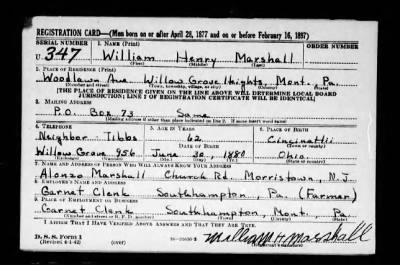 REGISTRATION CARD—(Men born on or after April 28, 1877 and on or before February 16, 1897)
SERIAL NUMBER 1. NAME (Print)
U 347 William Henry Marshall
(First) (Middle) (Last)
2. PLACE OF RESIDENCE (Print)
Woodlawn Ave Willow Grove Heights, Mont., Pa.
(Number and street) (Town, township, village, or city) (County) (State)
[THE PLACE OF RESIDENCE GIVEN ON THE LINE ABOVE WILL DETERMINE LOCAL BOARD
JURISDICTION; LINE 2 OF REGISTRATION CERTIFICATE WILL BE IDENTICAL]
3. MAILING ADDRESS
P.O. Box 73 Same
[Mailing address if other than place indicated on line 2. If same insert word same]
4. TELEPHONE 5. AGE IN YEARS 6. PLACE OF BIRTH
Neighbor Tibbs 62 Cincinattii
DATE OF BIRTH
Willow Grove 956 June 30, 1880 Ohio.
(Exchange) (Number) (Mo.) (Day) (Yr.) (State or country)
7. NAME AND ADDRESS OF PERSON WHO WILL ALWAYS KNOW YOUR ADDRESS
Alonzo Marshall Church Rd. Morristown, N.J.
8. EMPLOYER'S NAME AND ADDRESS
Garnet Clenk Southhampton, Pa (Farmer)
9. PLACE OF EMPLOYMENT OR BUSINESS
Garnet Clenk Southhampton, Mont. Pa.
(Number and street or R. F. D. number) (Town) (County) (State)
I AFFIRM THAT I HAVE VERIFIED ABOVE ANSWERS AND THAT THEY ARE TRUE.
D. S. S. Form 1
(Revised 4-1-42) (over) William H Marshall